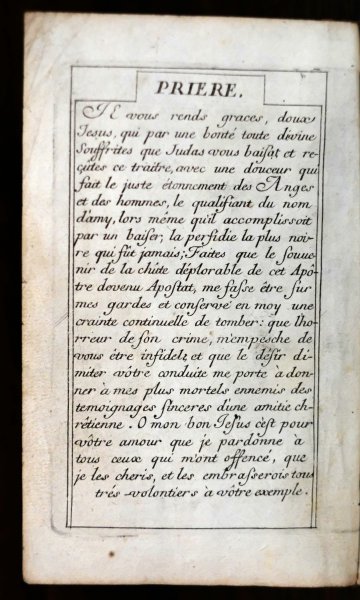 PRIERE.
JE vous rends graces, doux
Jesus, qui par une bonté toute divine
souffrites que Judas vous baisat et re-
çûtes ce traître, avec une douceur qui
fait le juste étonnement des Anges
et des hommes, le qualifiant du nom
d'amy, lors même qu'il accomplissoit
par un baiser, la perfidie la plus noi-
re qui fût jamais; Faites que le souve-
nir de la chûte déplorable de cet Apô-
tre devenu Apostat, me fasse être sur
mes gardes et conserve en moy une
crainte continuelle de tomber: que l'ho-
rreur de son crime, m'empesche de
vous être infidele, et que le désir d'i-
miter vôtre conduite me porte à don-
ner à mes plus mortels ennemis des
temoignages sinceres d'une amitie ch-
rétienne. O mon bon Jesus c'est pour
vôtre amour que je pardonne à
tous ceux qui m'ont offencé, que
je les cheris, et les embrasserois tous
très-volontiers à vôtre exemple.